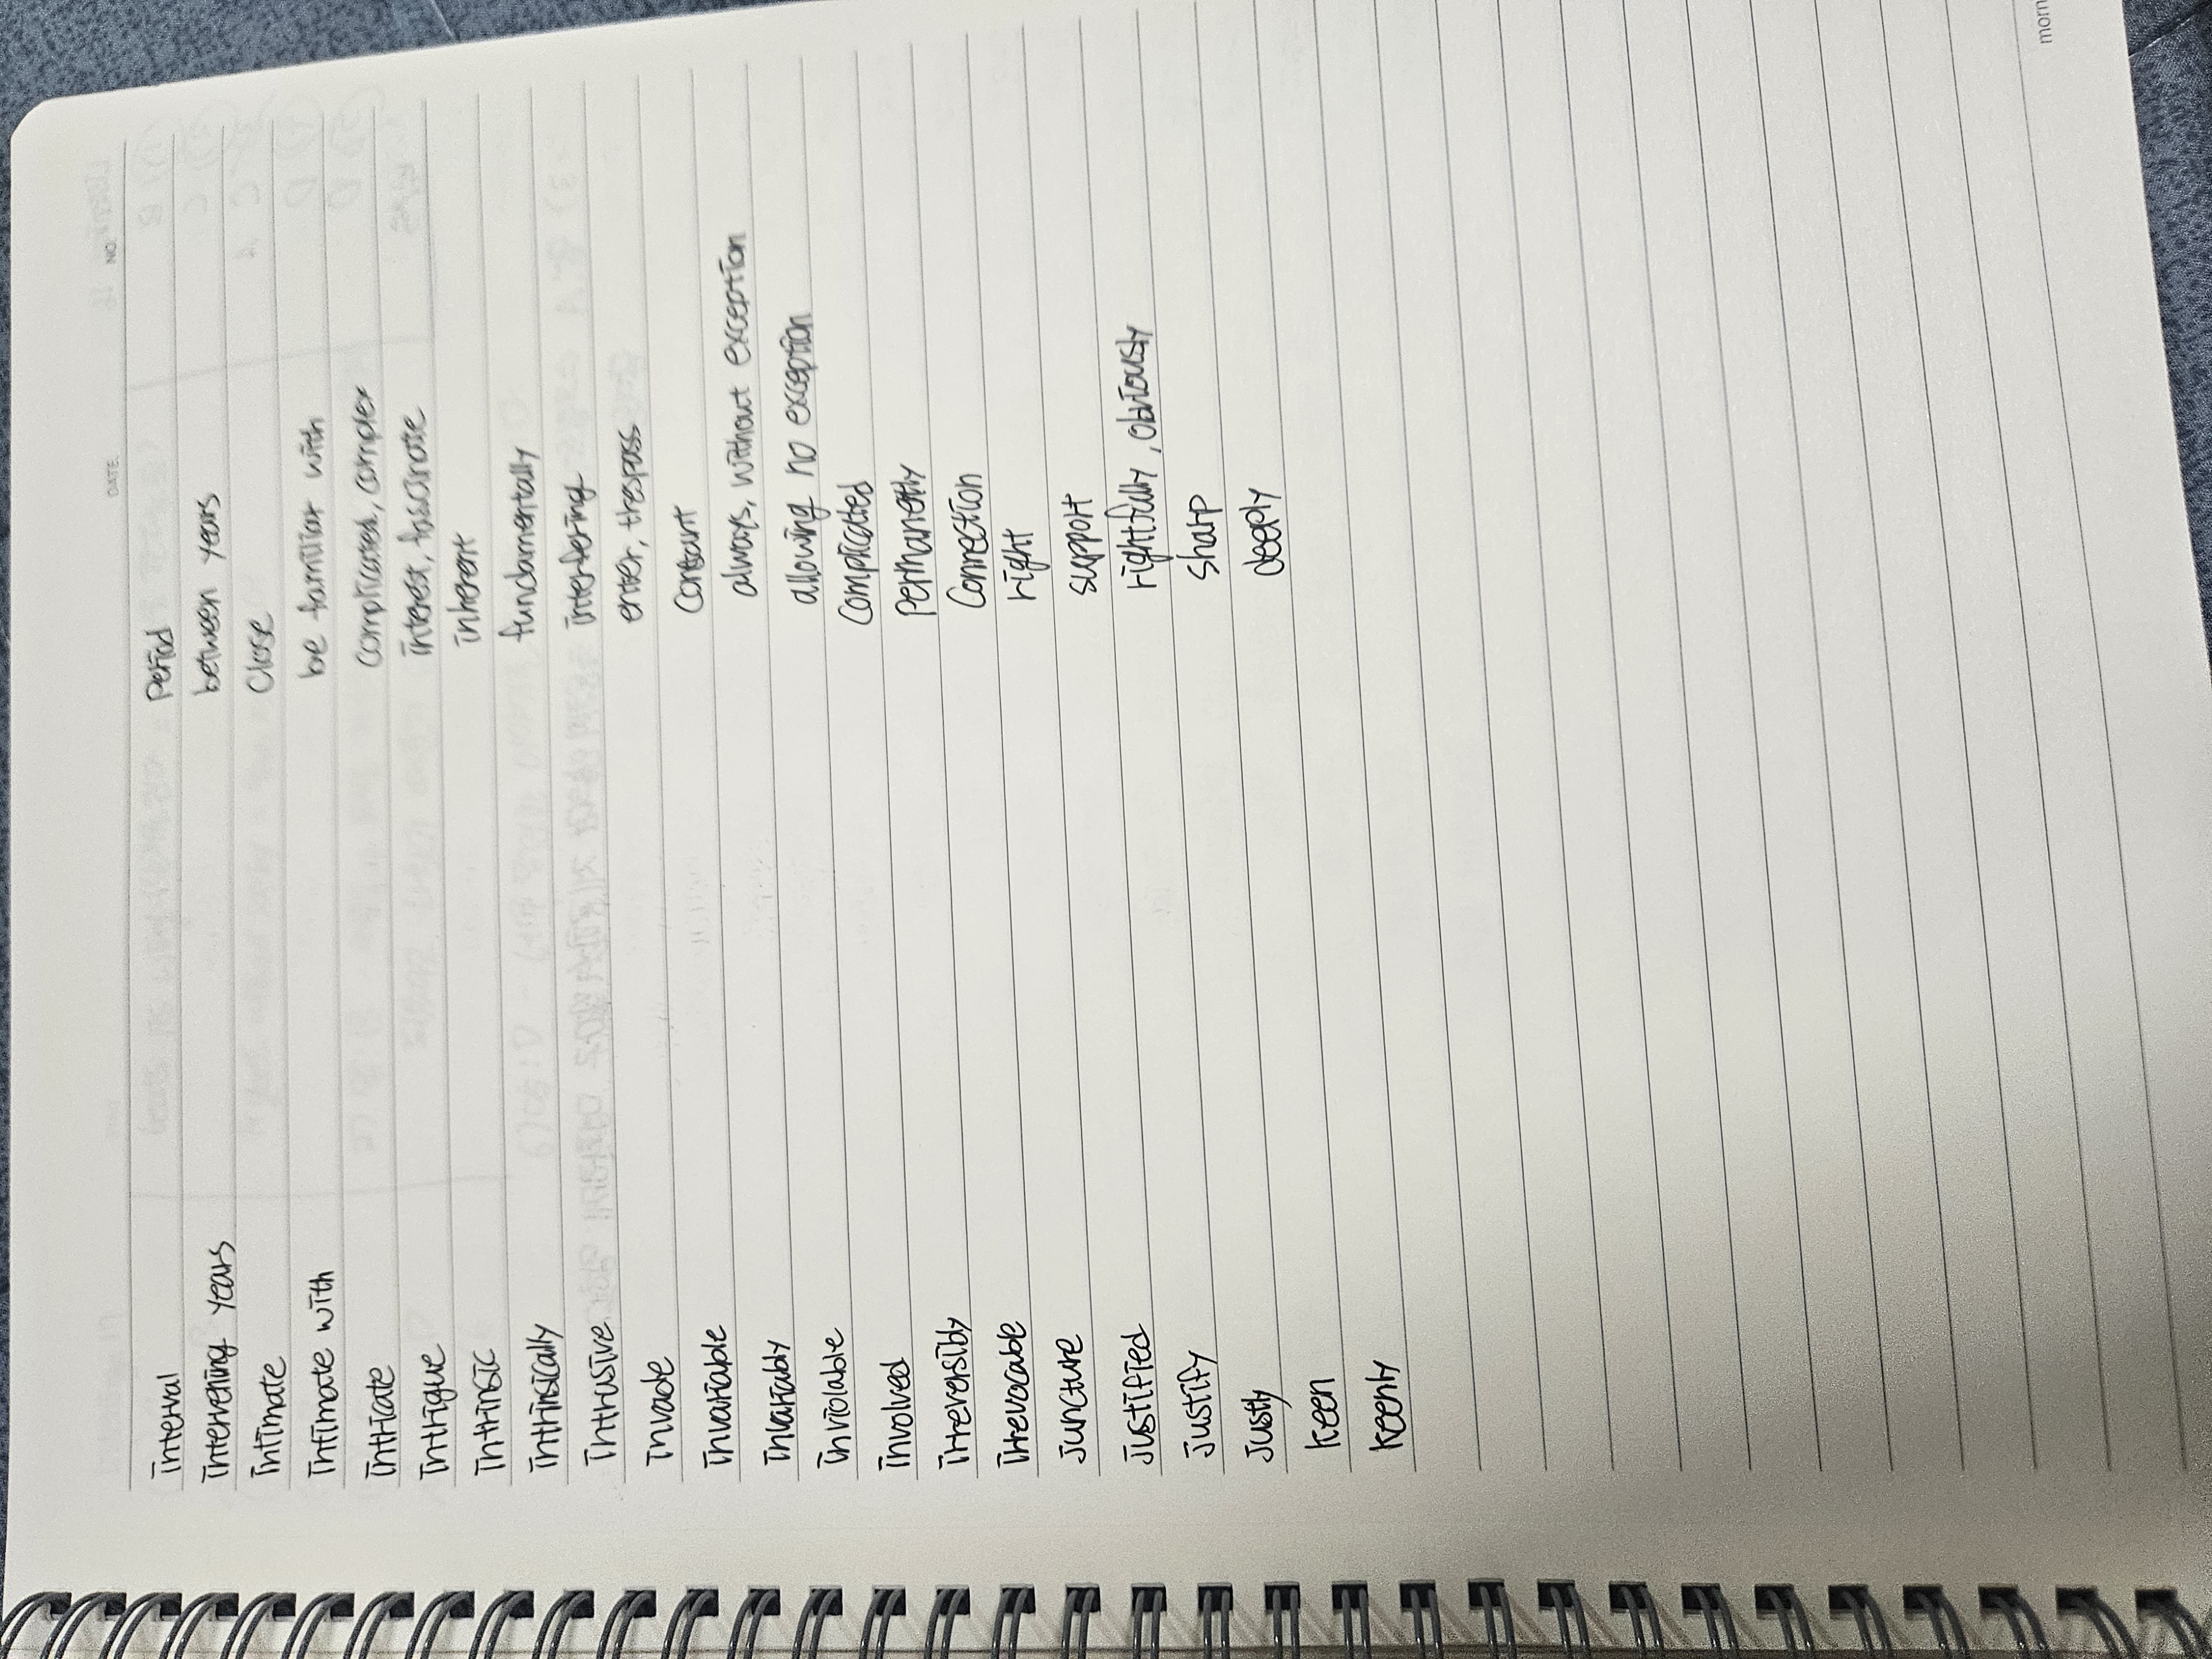 DATE. NO.
interval period
intervening years between years
intimate close
intimate with be familiar with
intricate complicated, complex
intrigue interest, fascinate
intrinsic inherent
intrinsically fundamentally
intrusive interfering
invade enter, trespass
invariable constant
invariably always, without exception
inviolable allowing no exception
involved complicated
irreversibly permanetly
irrevocable connection
juncture right
justified support
justify rightfully, obviously
justly sharp
keen deeply
keenly